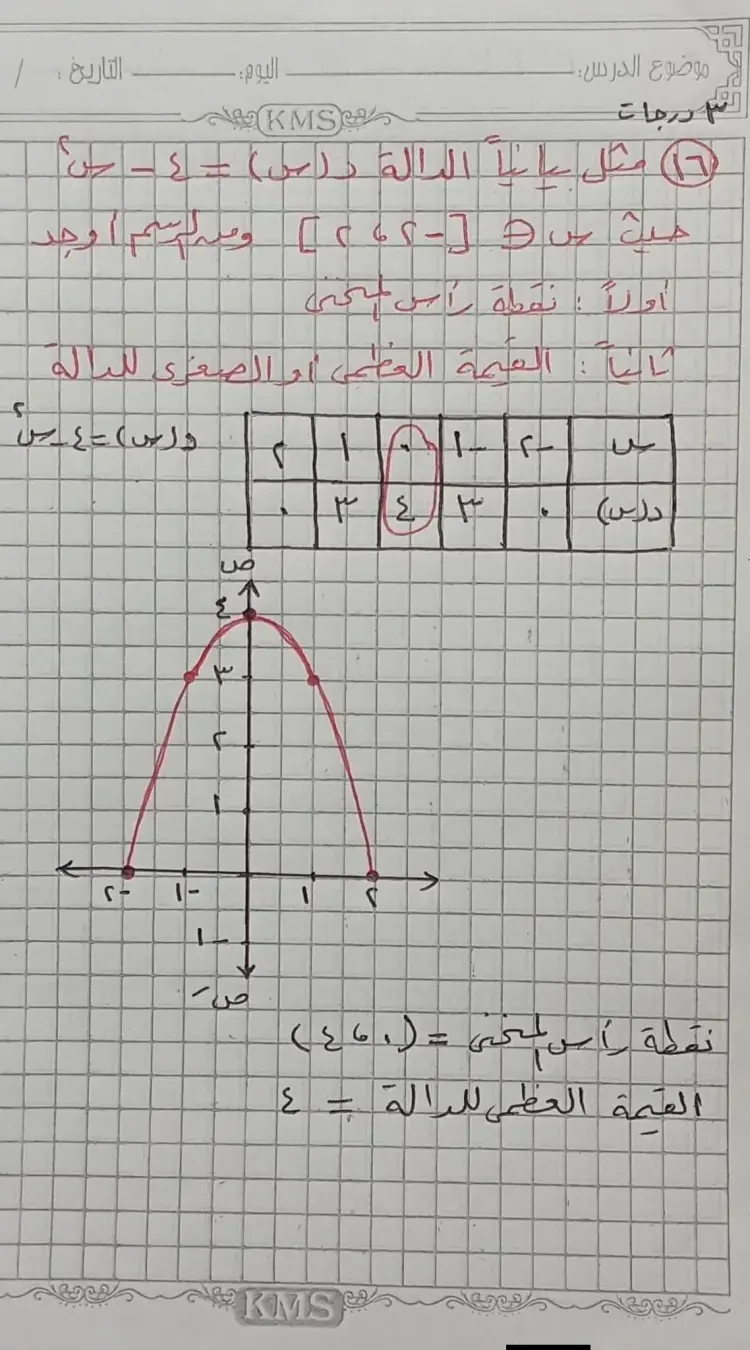 موضوع الدرس: اليوم: التاريخ: /
KMS
٣ درجات
١٦ مثل بيانياً الدالة د(س) = ٤ - س٢
حيث س ∈ [-٢، ٢] ومن الرسم أوجد
أولاً: نقطة رأس المنحنى
ثانياً: القيمة العظمى أو الصغرى للدالة
س -٢ -١ ٠ ١ ٢ د(س) = ٤ - س٢
د(س) ٠ ٣ ٤ ٣ ٠
ص
٤
٣
٢
١
-٢ -١ ١ ٢
-١
صَ
نقطة رأس المنحنى = (٠، ٤)
القيمة العظمى للدالة = ٤
KMS